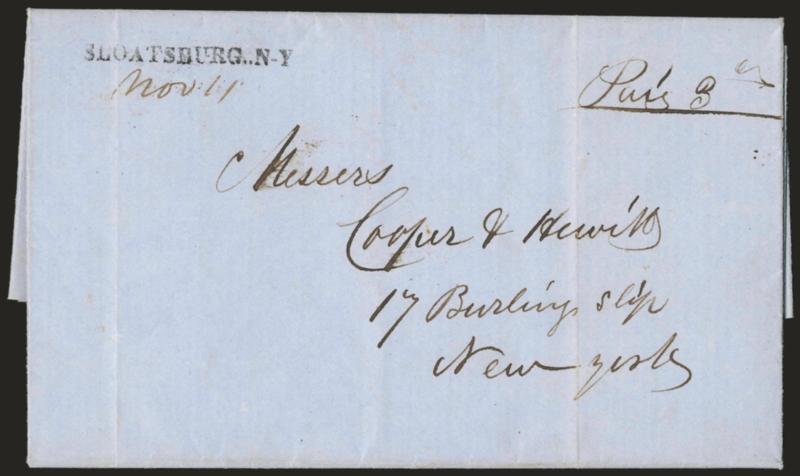 SLOATSBURG..N-Y
Nov 11
Paid 3 cts
Messers
Cooper & Hewitt
17 Burlings slip
New york